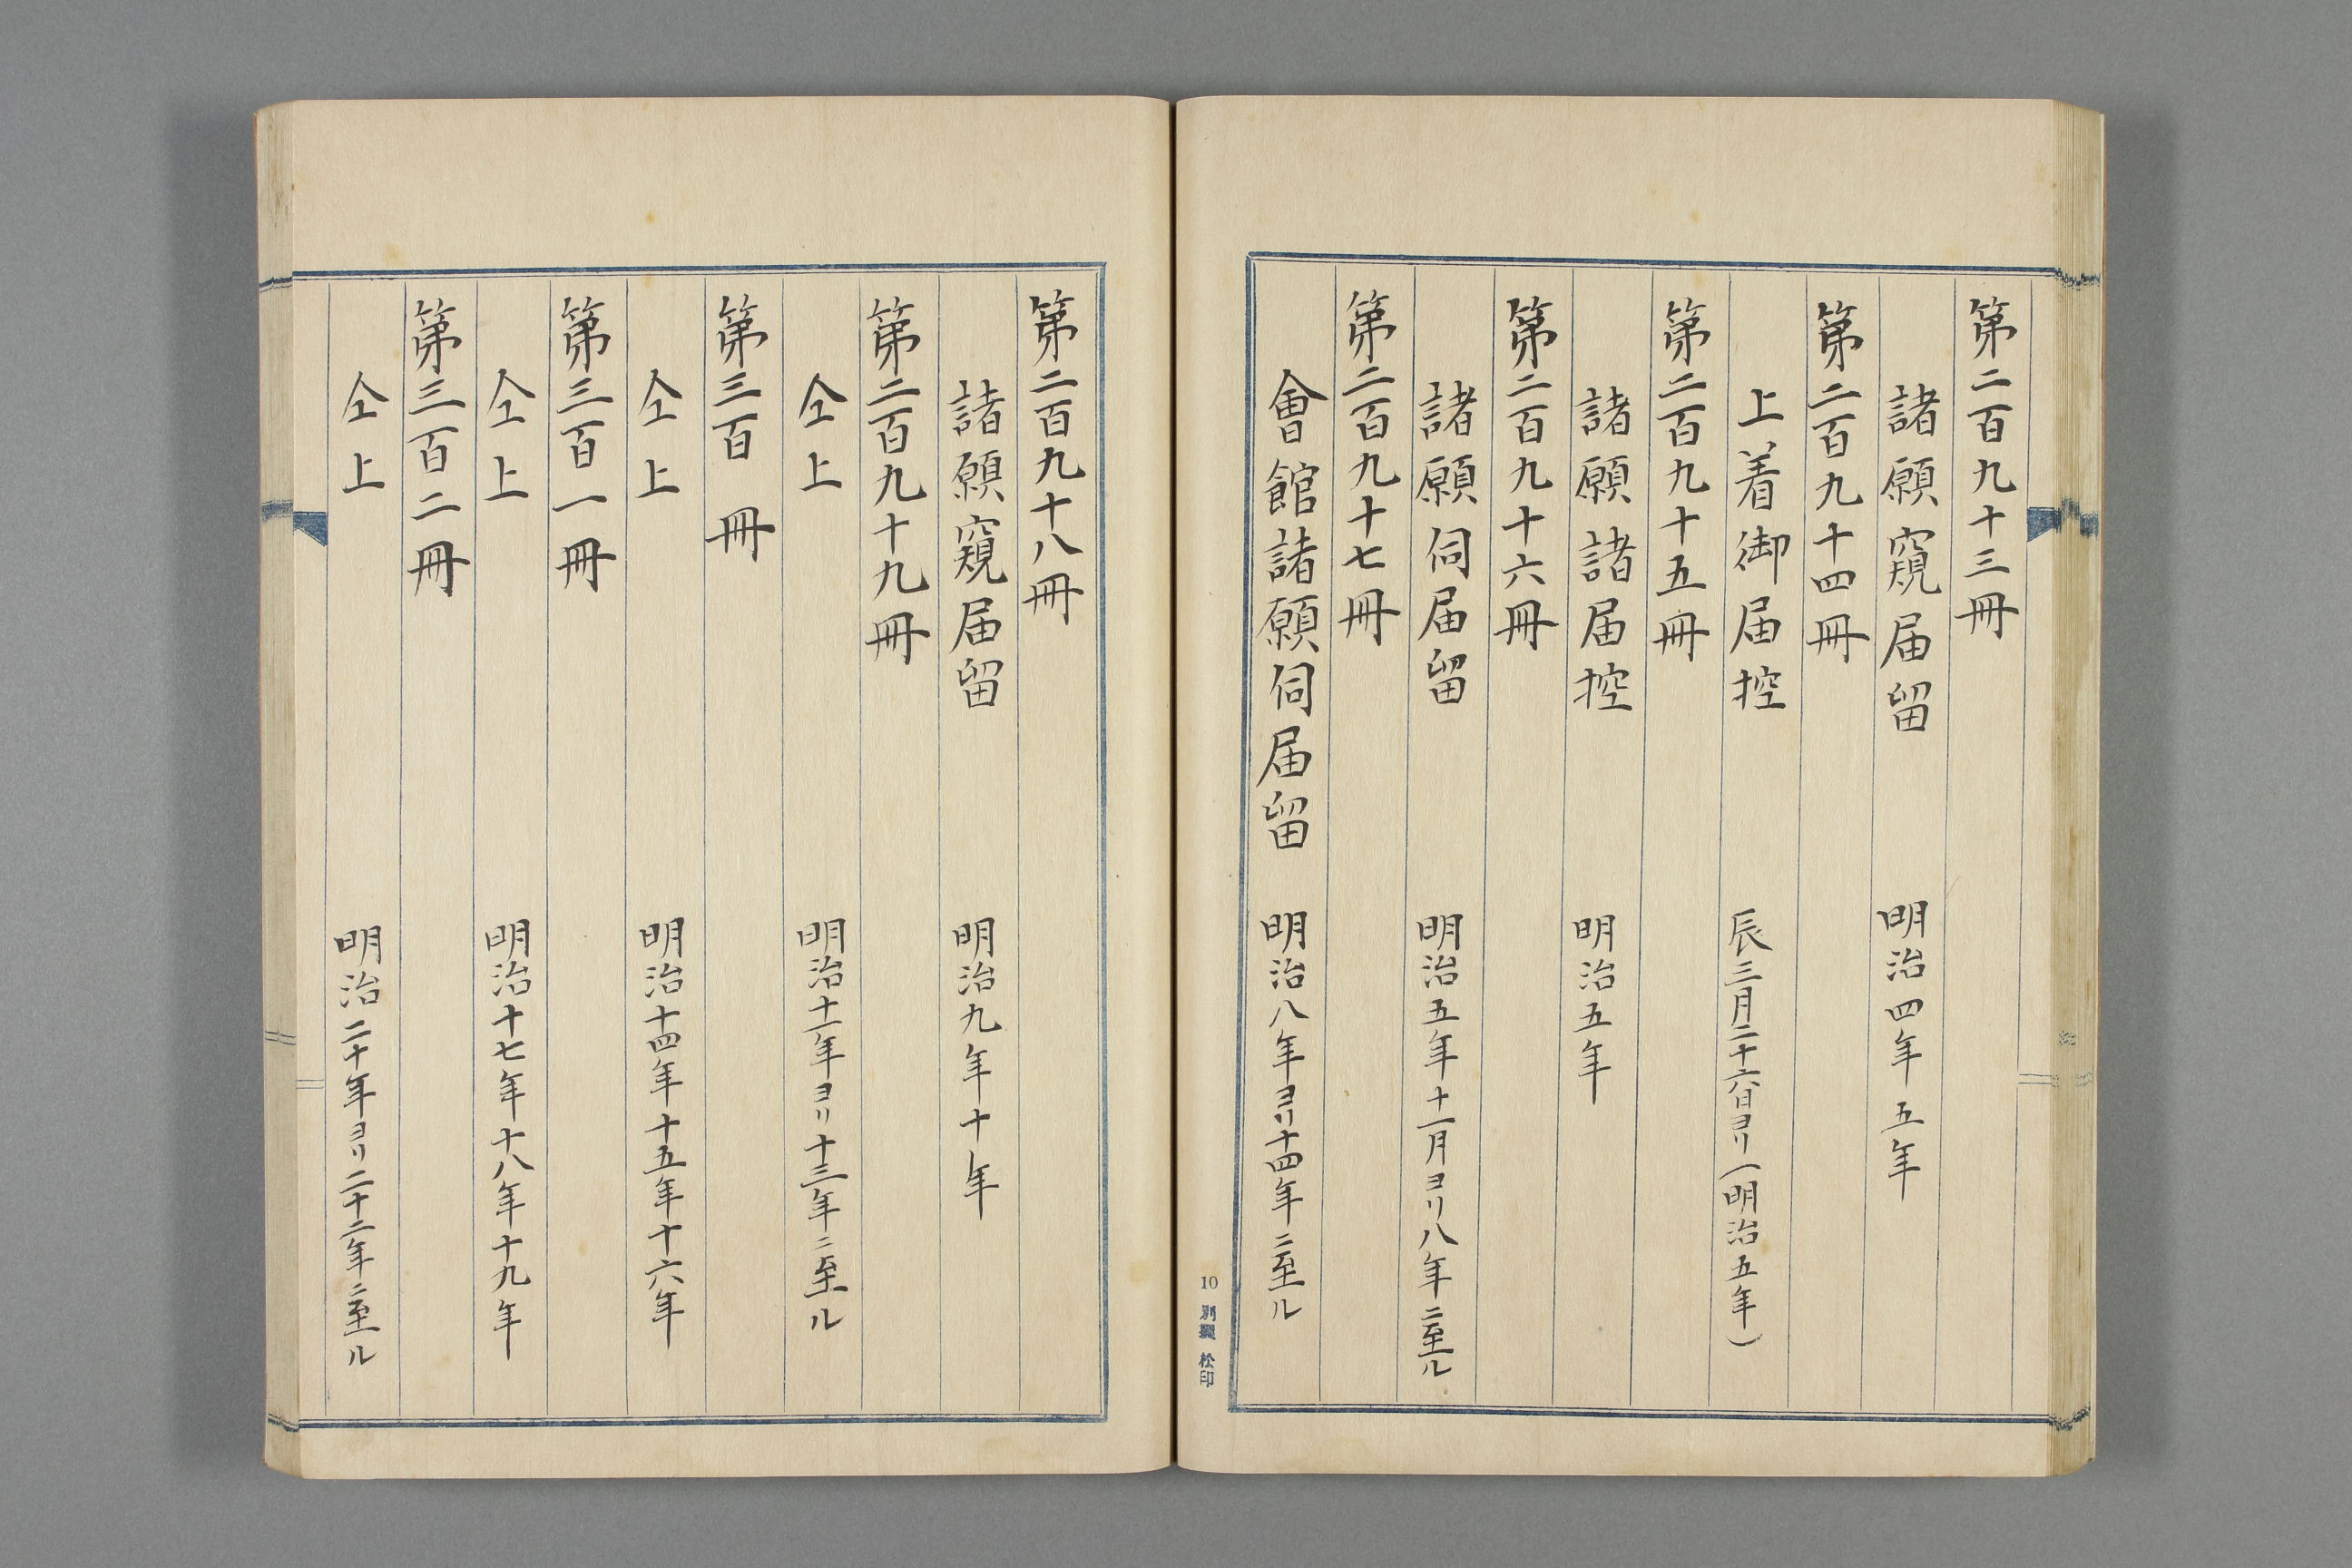 第二百九十三冊
諸願窺届留 明治四年 五年
第二百九十四冊
上着御届控 辰三月二十六日ヨリ(明治五年)
第二百九十五冊
諸願諸届控 明治五年
第二百九十六冊
諸願伺届留 明治五年十一月ヨリ八年ニ至ル
第二百九十七冊
會館諸願伺届留 明治八年ヨリ十四年ニ至ル
10 別製 松印
第二百九十八冊
諸願窺届留 明治九年十年
第二百九十九冊
仝上 明治十一年ヨリ十三年ニ至ル
第三百冊
仝上 明治十四年十五年十六年
第三百一冊
仝上 明治十七年十八年十九年
第三百二冊
仝上 明治二十年ヨリ二十二年ニ至ル